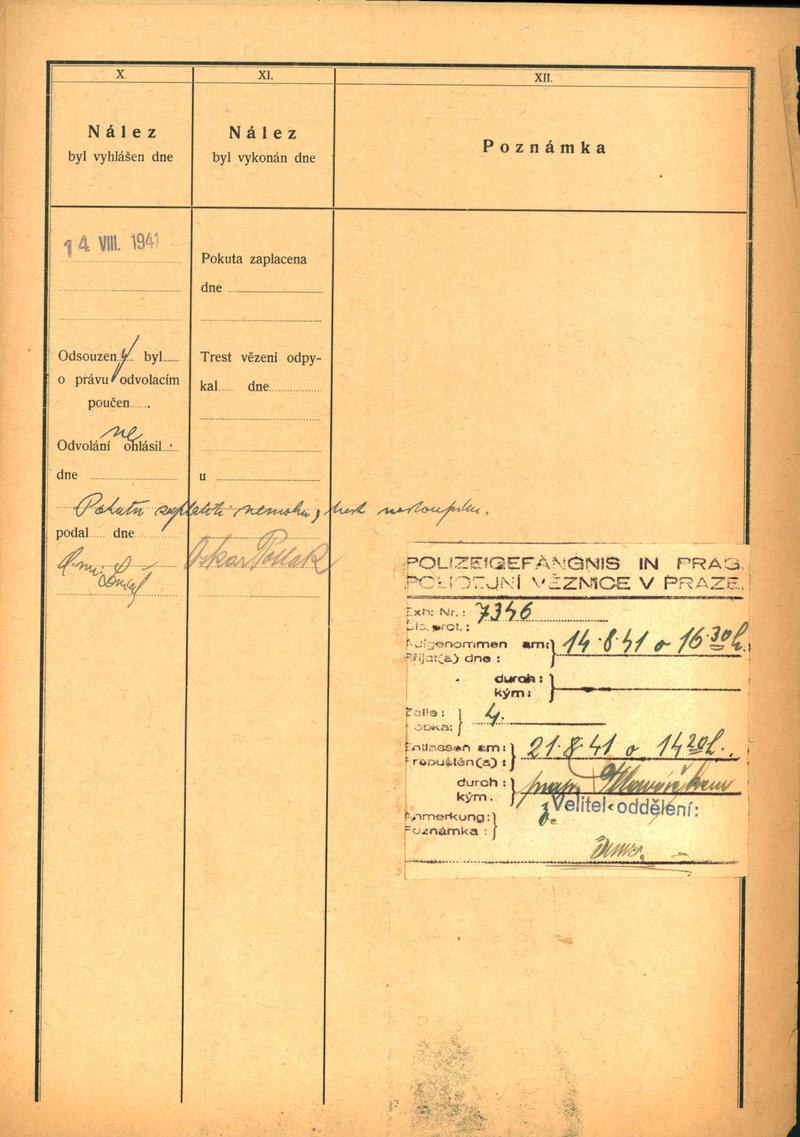 X.
Nález
byl vyhlášen dne
14. VIII. 1941
Odsouzený byl
o právu odvolacím
poučen
Odvolání neohlásil
dne
podal dne
XI.
Nález
byl vykonán dne
Pokuta zaplacena
dne
Trest vězení odpy-
kal dne
u
Pokutu zaplatiti nemohu, trest nastoupím.
Oskar Pollak
XII.
Poznámka
POLIZEIGEFÄNGNIS IN PRAG
POLICEJNÍ VĚZNICE V PRAZE.
Exh: Nr.: 7346
Čís. prot.:
Aufgenommen am: 14.8.41 o 16.30 h.
Přijat(a) dne:
durch:
kým:
Zelle: 4.
Cobka:
Entlassen am: 21.8.41 o 14 20 h.
Propuštěn(a):
durch:
kým.
Velitel oddělení:
Anmerkung:
Poznámka: